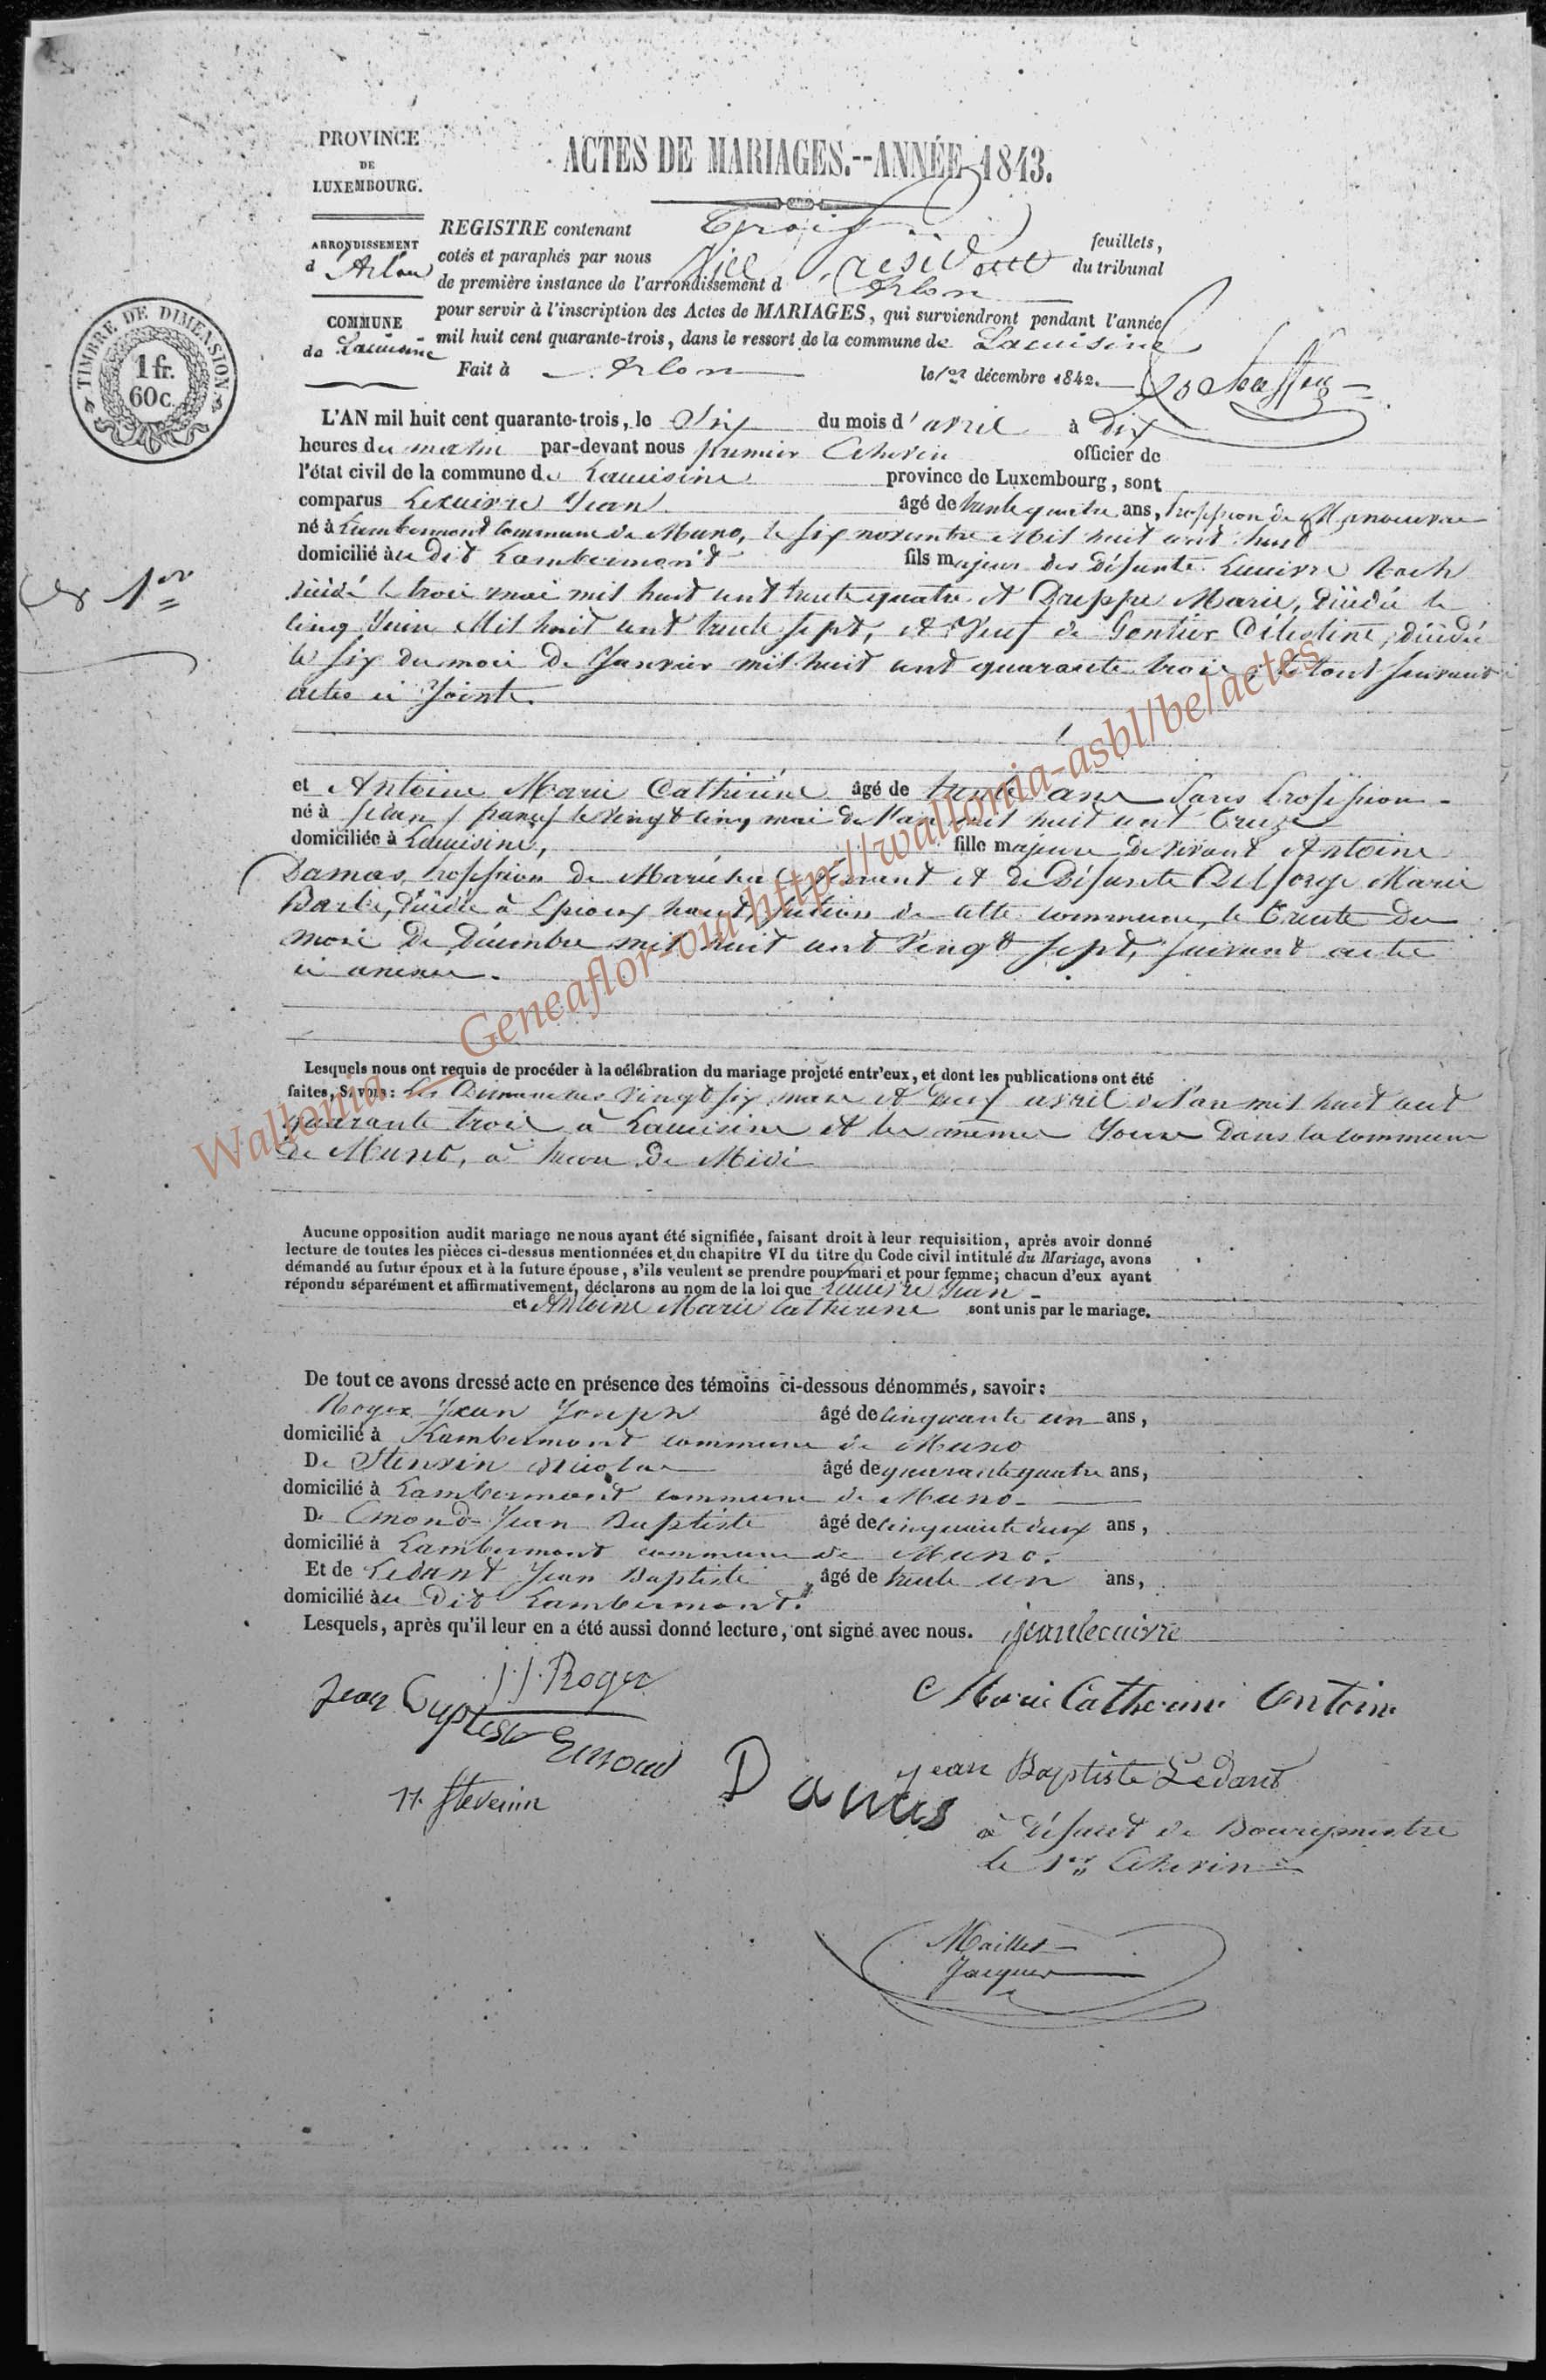 PROVINCE
DE
LUXEMBOURG.
ARRONDISSEMENT
d'Arlon
COMMUNE
de Lacuisine
TIMBRE DE DIMENSION
1 fr.
60 c.
ACTES DE MARIAGES.--ANNÉE 1843.
REGISTRE contenant Trois feuillets,
cotés et paraphés par nous Vice Président du tribunal
de première instance de l'arrondissement d'Arlon
pour servir à l'inscription des Actes de MARIAGES, qui surviendront pendant l'année
mil huit cent quarante-trois, dans le ressort de la commune de Lacuisine
Fait à Arlon le 1er décembre 1842.
N° 1er
L'AN mil huit cent quarante-trois, le Dix du mois d'avril à dix
heures du matin par-devant nous premier Echevin officier de
l'état civil de la commune de Lacuisine province de Luxembourg, sont
comparus Lecuivre Jean âgé de trente quatre ans, profession de Manoeuvre
né à Lambermont Commune de Muno, le six novembre Mil huit cent huit
domicilié au dit Lambermont fils majeur des Défunts Lecuivre Roch
décédé le trois mai mil huit cent trente quatre et Drappe Marie, décédée le
cinq Juin Mil huit cent trente sept, et Veuf de Gontier Célestine, décédée
le six du mois de Janvier mil huit cent quarante trois, le tout suivant
actes ci Joints.
et Antoine Marie Catherine âgé de trente ans Sans Profession
né à Sedan, france, le vingt cinq mai de l'an mil huit cent Treize
domiciliée à Lacuisine, fille majeure De vivant Antoine
Damas, profession de Maréchal ferrant et de Défunte Delforge Marie
Barbe, décédée à Epioux haut, section de cette commune, le Trente du
mois de Décembre mil huit cent vingt sept, suivant acte
ci annexé.
Lesquels nous ont requis de procéder à la célébration du mariage projeté entr'eux, et dont les publications ont été
faites, Savoir: Les Dimanches Vingt six mars et deux avril de l'an mil huit cent
quarante trois à Lacuisine et les mêmes Jours Dans la commune
de Muno, à heure de Midi
Aucune opposition audit mariage ne nous ayant été signifiée, faisant droit à leur requisition, après avoir donné
lecture de toutes les pièces ci-dessus mentionnées et du chapitre VI du titre du Code civil intitulé du Mariage, avons
démandé au futur époux et à la future épouse, s'ils veulent se prendre pour mari et pour femme; chacun d'eux ayant
répondu séparément et affirmativement, déclarons au nom de la loi que Lecuivre Jean
et Antoine Marie Catherine sont unis par le mariage.
De tout ce avons dressé acte en présence des témoins ci-dessous dénommés, savoir:
Roger Jean Joseph âgé de cinquante un ans,
domicilié à Lambermont commune de Muno
De Stenvin Nicolas âgé de quarante quatre ans,
domicilié à Lambermont commune de Muno
De Emond Jean Baptiste âgé de cinquante deux ans,
domicilié à Lambermont commune de Muno.
Et de Ledant Jean Baptiste âgé de trente un ans,
domicilié au Dit Lambermont.
Lesquels, après qu'il leur en a été aussi donné lecture, ont signé avec nous. jean lecuivre
J. J. Roger
Marie Catherine Antoine
Jean Baptiste
Damas
Jean Baptiste Ledant
N. Stevenin
à défaut de Bourgmestre
le 1er Echevin
Maillet
Jacques
Wallonia - Geneaflor-via http://wallonia-asbl/be/actes